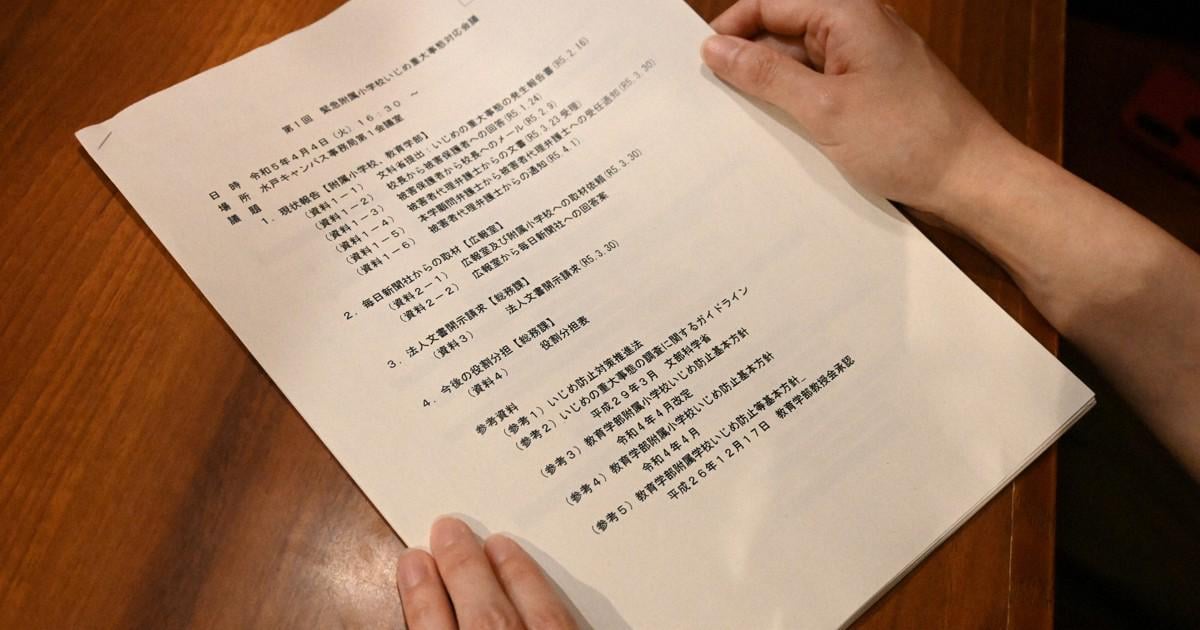 第1回　緊急附属小学校いじめ重大事態対応会議
日　時　令和5年4月4日（火）16．30　～
場　所　水戸キャンパス事務局第1会議室
議　題
1．現状報告【附属小学校、教育学部】
（資料1－1）　文科省提出：いじめの重大事態の発生報告書(R5.2.16)
（資料1－2）　校長から被害保護者への回答(R5.1.24)
（資料1－3）　被害保護者から校長へのメール(R5.2.9)
（資料1－4）　被害者代理弁護士からの文書(R5.3.23 受理)
（資料1－5）　本学顧問弁護士から被害者代理弁護士への受任通知(R5.3.30)
（資料1－6）　被害者代理弁護士からの通知(R5.4.1)
2．毎日新聞社からの取材【広報室】
（資料2－1）　広報室及び附属小学校への取材依頼(R5.3.30)
（資料2－2）　広報室から毎日新聞社への回答案
3．法人文書開示請求【総務課】
（資料3）　法人文書開示請求(R5.3.30)
4．今後の役割分担【総務課】
（資料4）　役割分担表
参考資料
（参考1）いじめ防止対策推進法
（参考2）いじめの重大事態の調査に関するガイドライン
平成29年3月　文部科学省
（参考3）教育学部附属小学校いじめ防止基本方針
令和4年4月改定
（参考4）教育学部附属小学校いじめ防止基本方針
令和4年4月
（参考5）教育学部附属学校いじめ防止等基本方針
平成26年12月17日　教育学部教授会承認